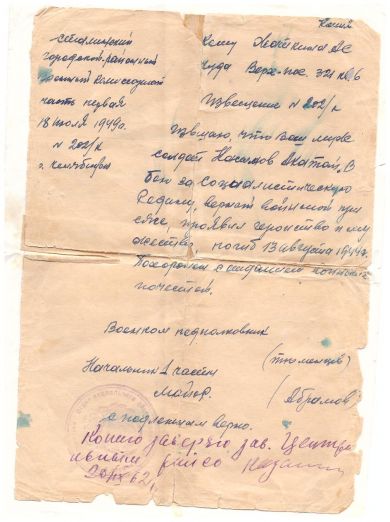 Копия
Сталинский
городской районный
военный комиссариат
часть первая
18 июля 1949 г.
N 202/к
г. Челябинск
Кому
куда Верх-
Извещение N 202/к
Извещаю, что Ваш
солдат, в
бою за социалистическую
Родину, верный воинской при
сяге, проявив геройство и му
жество, погиб 13 августа 1944 г.
Похоронен с отданием
почестей.
Военком подполковник
(Тюменцев)
Начальник 1 части
майор
(Абрамов
с подлинным верно.
Копию заверяю зав. Центра
льным райсо
62 г.